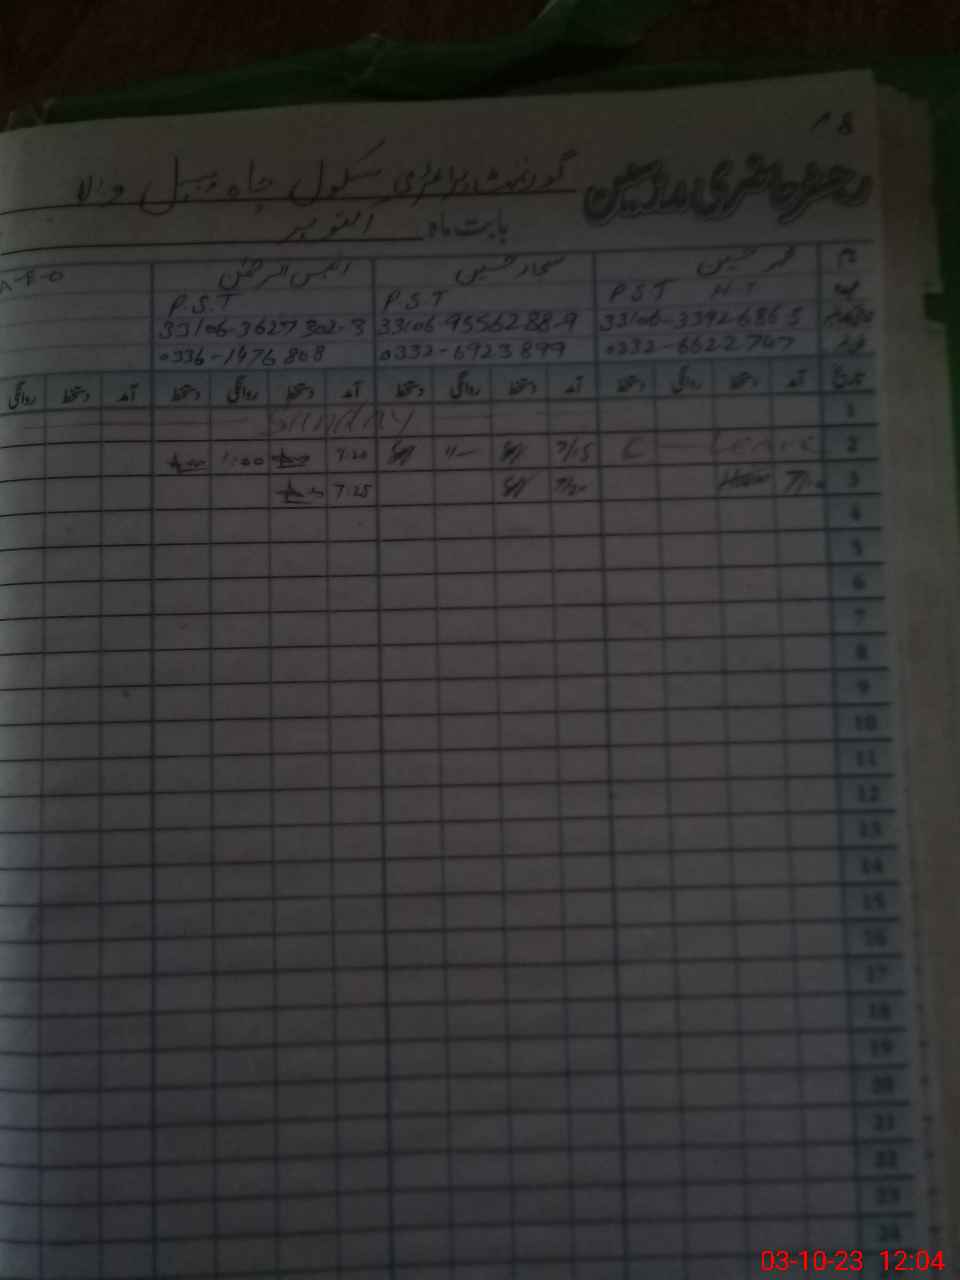 ۸
رجسٹر حاضری مدرسین گورنمنٹ پرائمری سکول چاہ والا
بابت ماہ اکتوبر
نام حسین سجاد حسین انیس الرحمٰن A-E-O
عہدہ PST H.T P.S.T P.S.T
33106-3392686-5 33106-9556288-9 33106-3627302-3
0332-6622747 0332-6923899 0336-1476808
تاریخ آمد دستخط روانگی دستخط آمد دستخط روانگی دستخط آمد دستخط روانگی دستخط آمد دستخط روانگی
1 SUNDAY
2 C — Leave 7/15 1/— 7.20 1:00
3 7/20 7.25
4
5
6
7
8
9
10
11
12
13
14
15
16
17
18
19
20
21
22
23
24
03-10-23 12:04